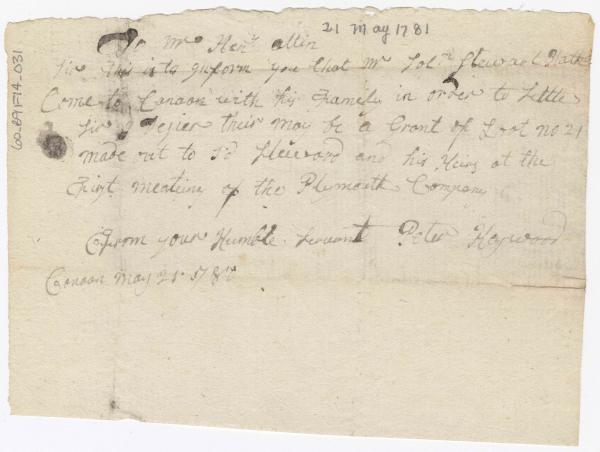 21 May 1781
To Mr Henr allin
Sir this is to Inform you that Mr Solm Steward Hath
Come to Canaan with his Family in order to Settle
Sir I Desier their may be a Grant of Loot no 21
made out to sd Steward and his Heirs at the
First meating of the Plymouth Company
From your Humble Servant Peter Heywood
Canaan May 21 1781
Coll.89/F14-031